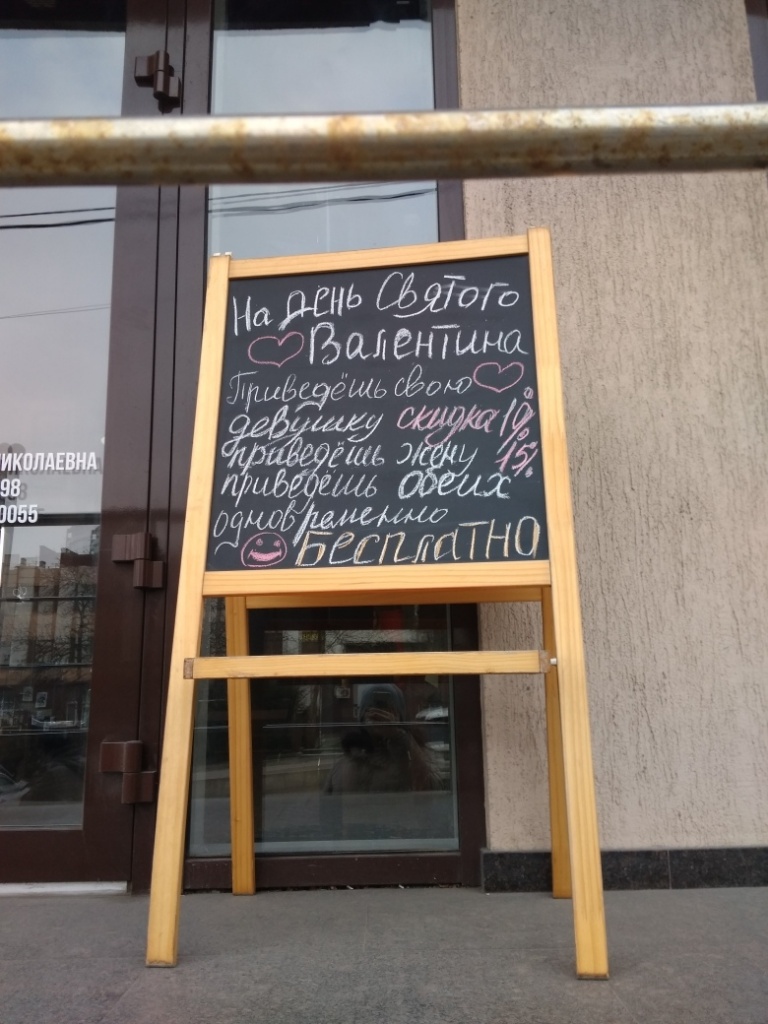 На День Святого
Валентина
Приведёшь свою
девушку скидка 10%
приведёшь жену 15%
приведёшь обеих
одновременно
Бесплатно
ИКОЛАЕВНА
98
0055